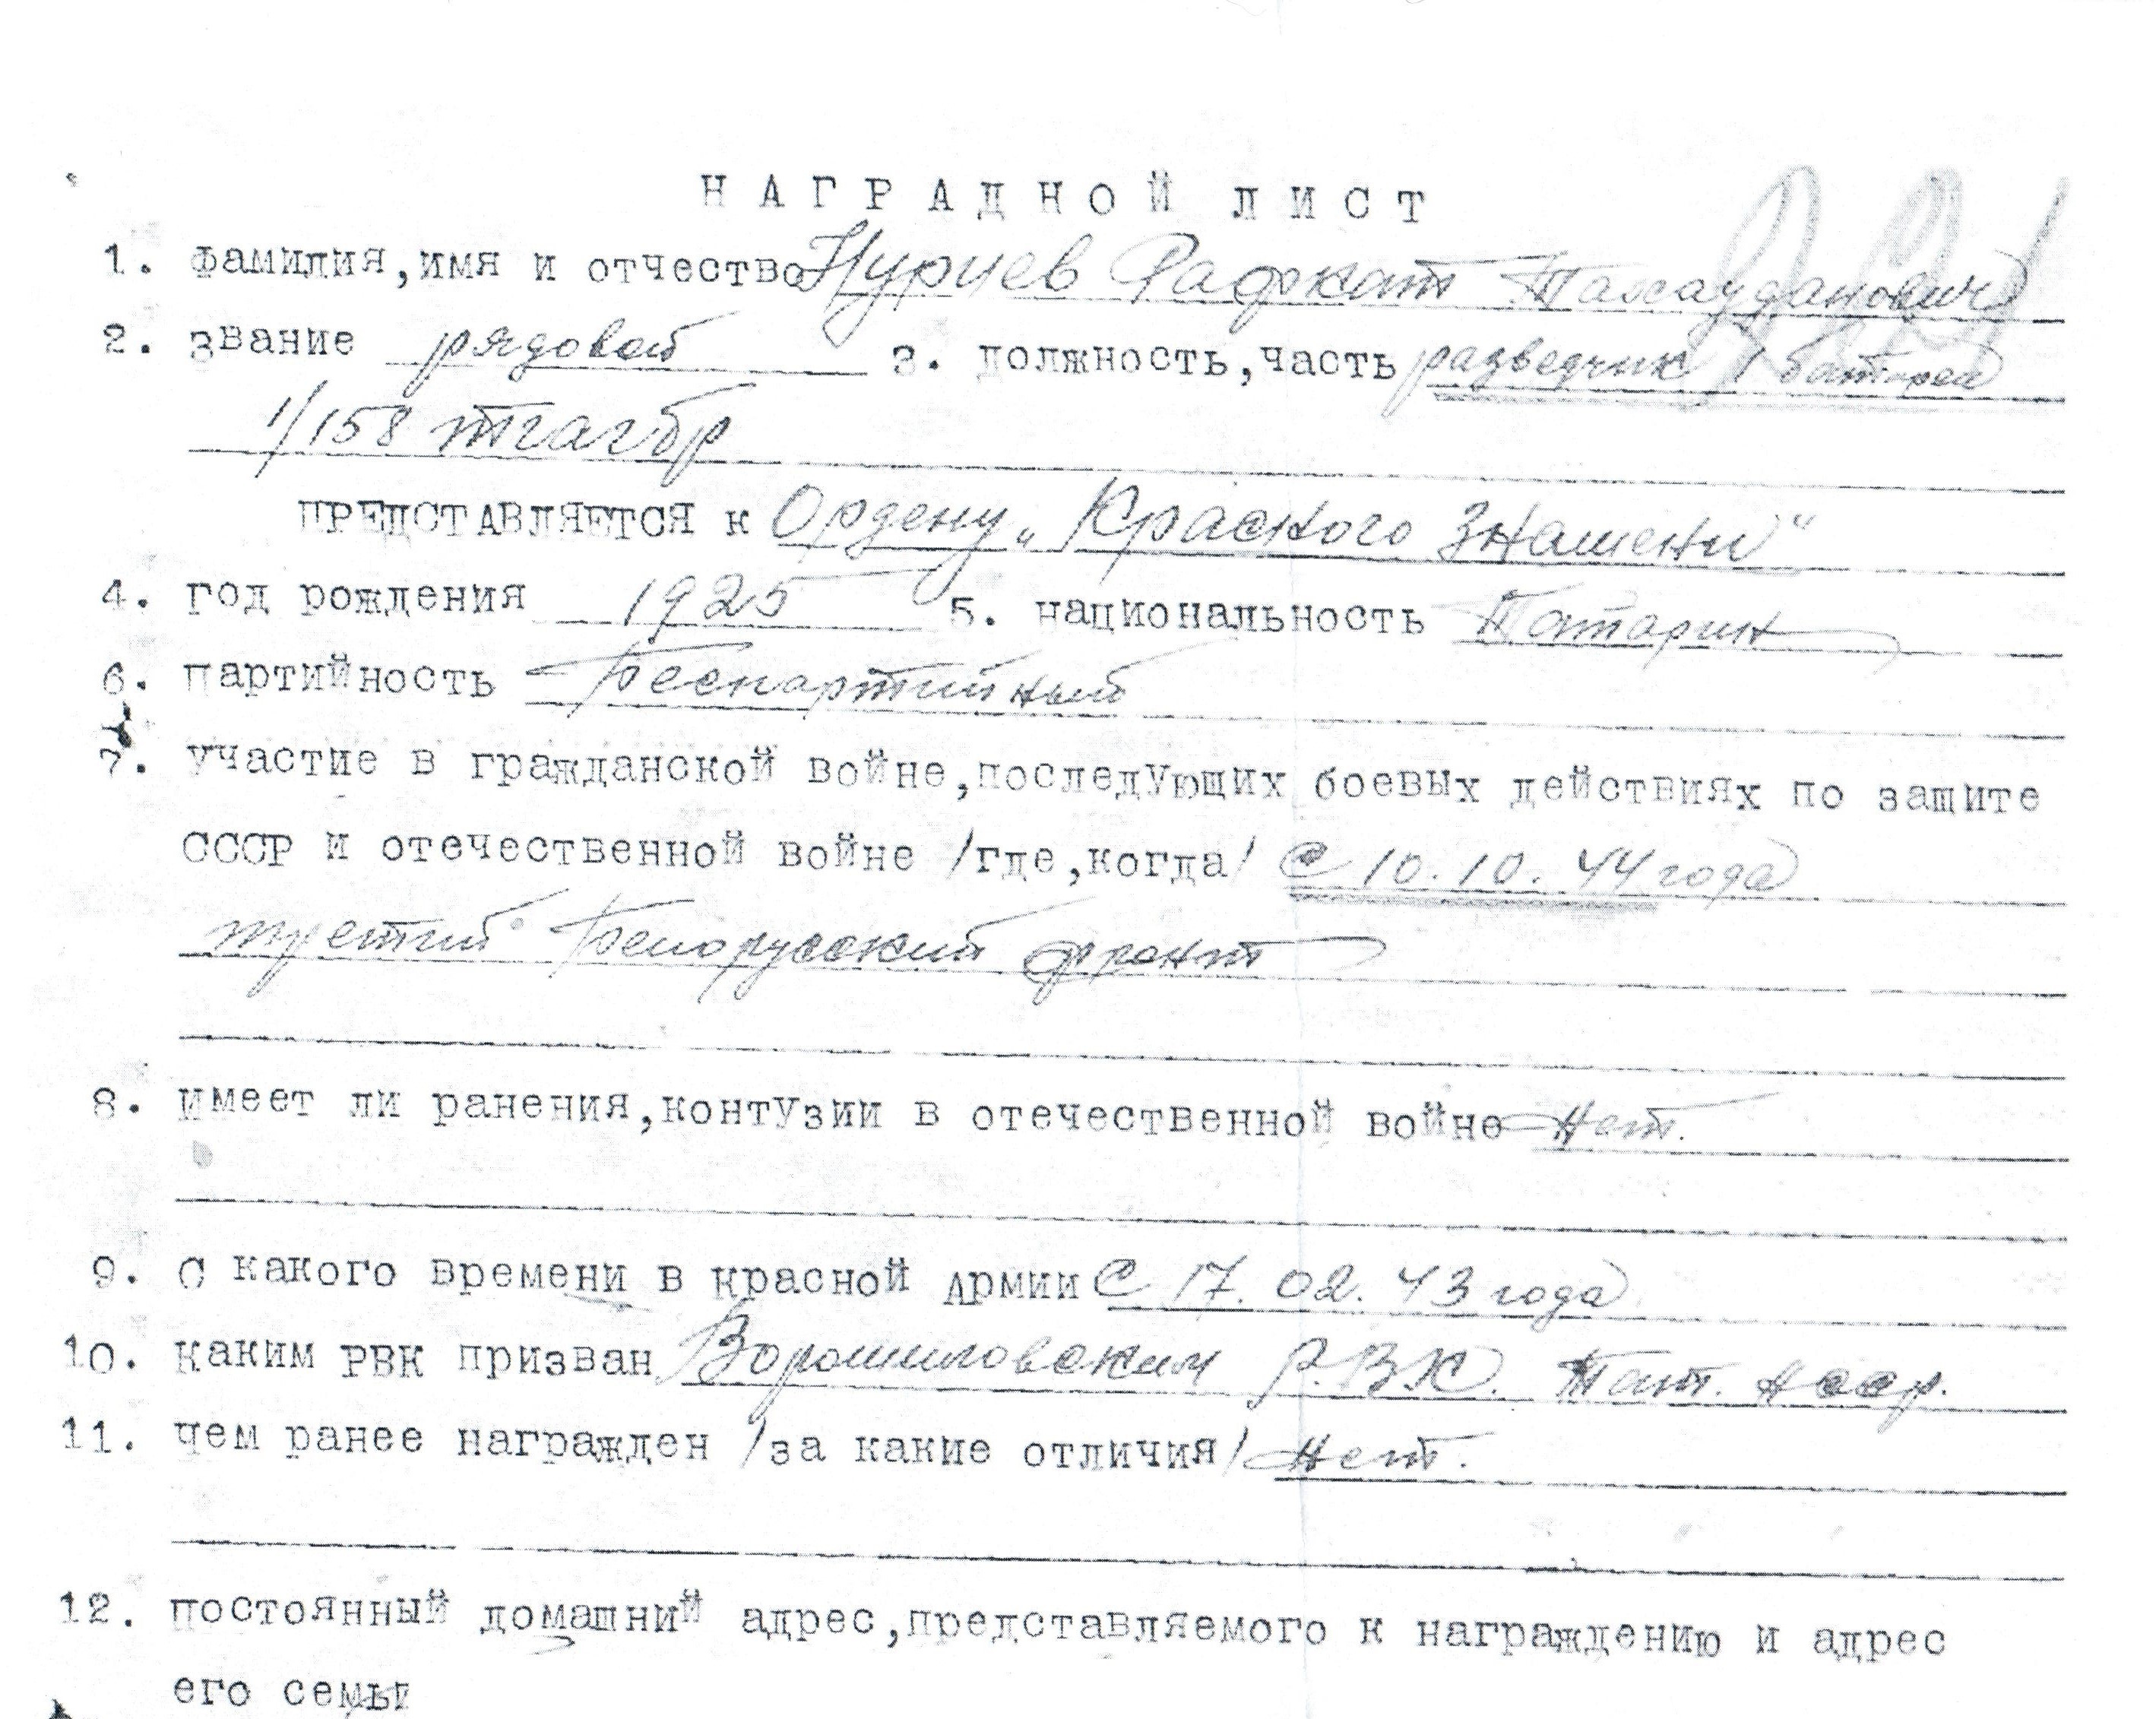 НАГРАДНОЙ ЛИСТ
1. фамилия,имя и отчество Нуриев Рафкат
2. звание рядовой 3. должность,часть разведчик 1 батареи
1/158 тгагбр
ПРЕДСТАВЛЯЕТСЯ к Ордену „Красного Знамени“
4. год рождения 1925 5. национальность Татарин
6. партийность Беспартийный
7. участие в гражданской войне,последующих боевых действиях по защите
СССР и отечественной войне /где,когда/ С 10.10.44 года
третий Белорусский фронт
8. имеет ли ранения,контузии в отечественной войне Нет.
9. С какого времени в красной Армии С 17.02.43 года
10. каким РВК призван Ворошиловским Р.В.К. Тат. Асср.
11. чем ранее награжден /за какие отличия/ Нет.
12. постоянный домашний адрес,представляемого к награждению и адрес
его семьи